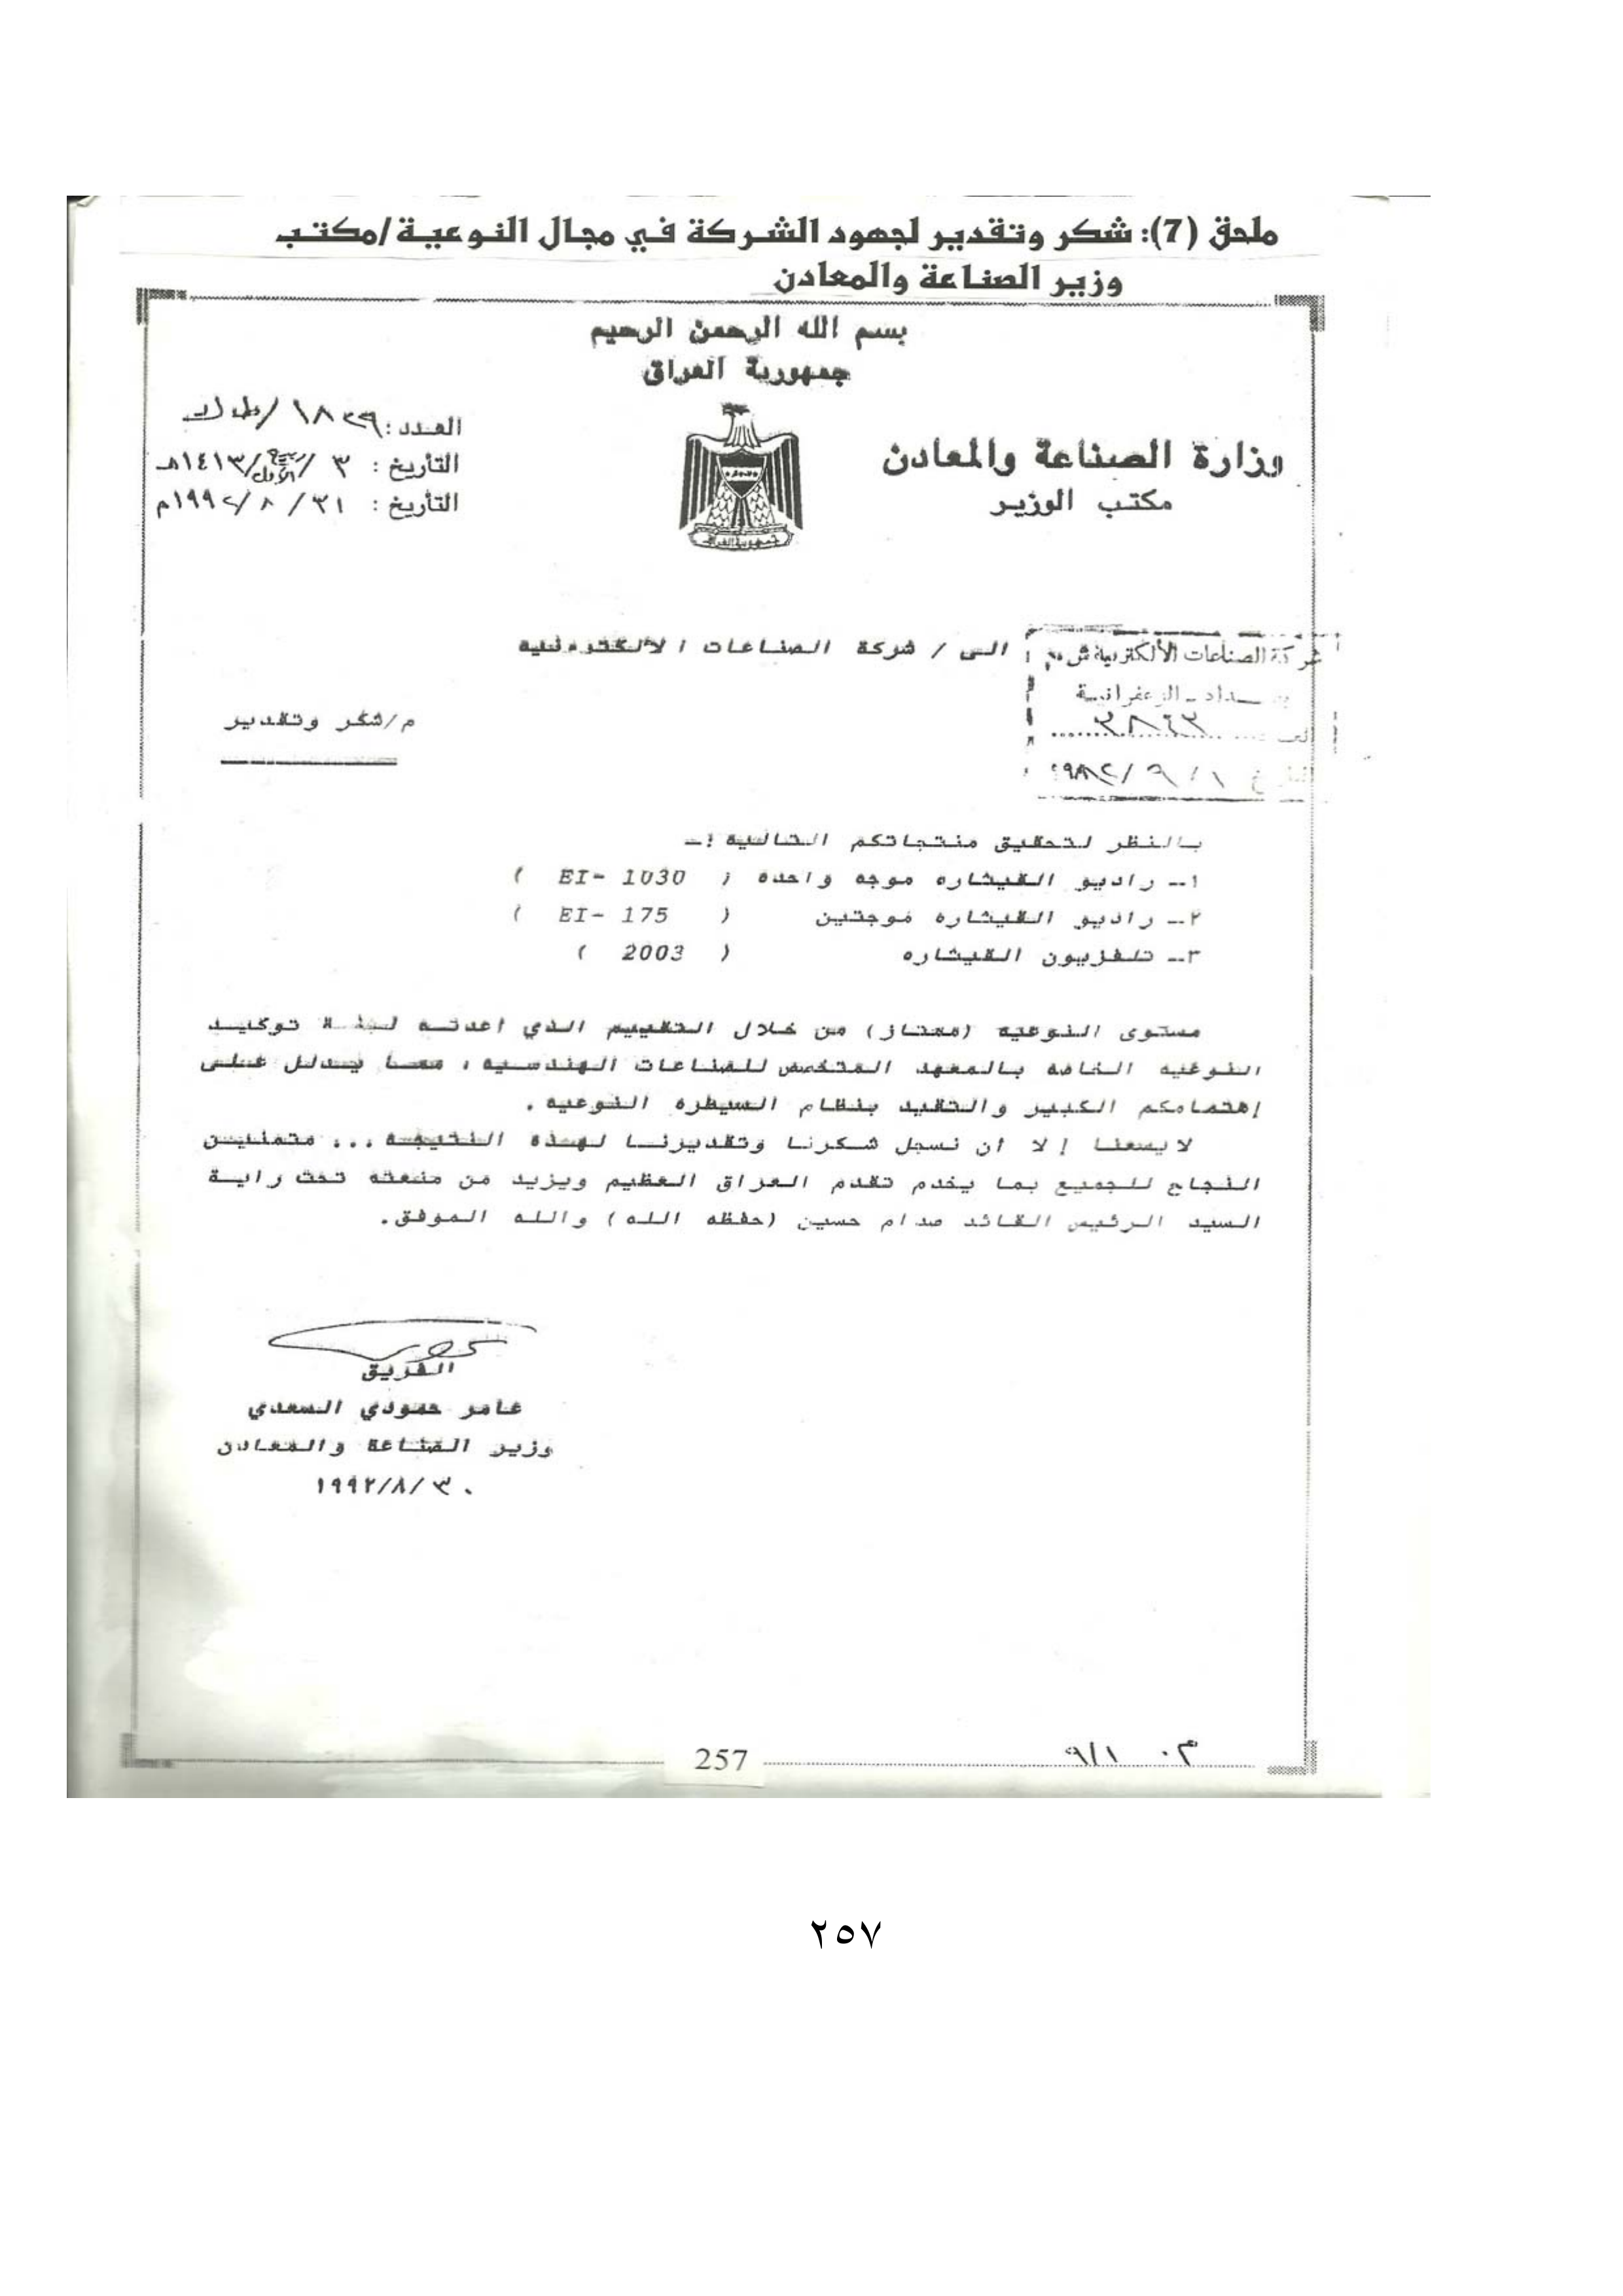 ملحق (7): شكر وتقدير لجهود الشركة في مجال النوعية/مكتب
وزير الصناعة والمعادن
بسم الله الرحمن الرحيم
جمهورية العراق
وزارة الصناعة والمعادن
مكتب الوزير
العدد:
التأريخ : ٣ / ربيع الأول/١٤١٣هـ
التأريخ : ٣١ / ٨ /١٩٩٢م
جمهورية العراق
الى / شركة الصناعات الألكترونيه
شركة الصناعات الألكترونية ش.م
بغداد - الزعفرانية
٣٨٤٣
م/شكر وتقدير
بالنظر لتحقيق منتجاتكم التاليه :-
١- راديو القيثاره موجه واحده ( EI- 1030 )
٢- راديو القيثاره موجتين ( EI- 175 )
٣- تلفزيون القيثاره ( 2003 )
مستوى النوعيه (ممتاز) من خلال التقييم الذي أعدته لجنة توكيد
النوعيه الخاصه بالمعهد المتخصص للصناعات الهندسيه، مما يدلل على
إهتمامكم الكبير والتقيد بنظام السيطره النوعيه.
لايسعنا إلا أن نسجل شكرنا وتقديرنا لهذه النتيجه... متمنين
النجاح للجميع بما يخدم تقدم العراق العظيم ويزيد من منعته تحت راية
السيد الرئيس القائد صدام حسين (حفظه الله) والله الموفق.
الفريق
عامر حمودي السعدي
وزير الصناعة والمعادن
١٩٩٢/٨/٣٠
٩/١
257
٢٥٧